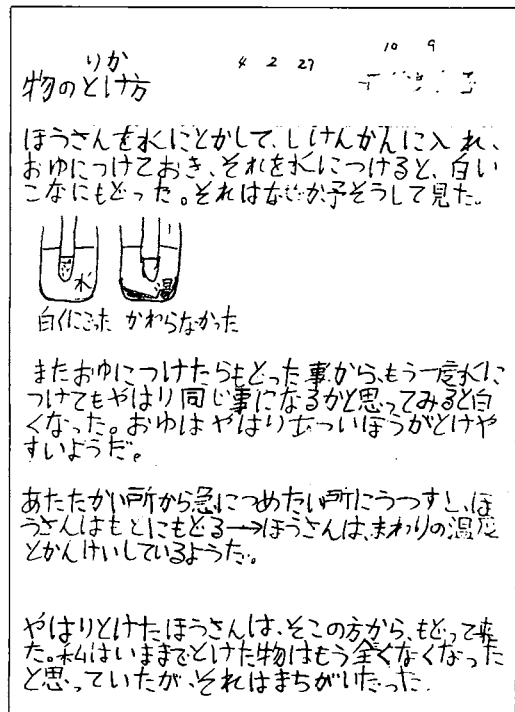 りか
4 2 27
10 9
物のとけ方
ほうさんを水にとかして、しけんかんに入れ、
おゆにつけておき、それを水につけると、白い
こなにもどった。それはなぜか予そうして見た。
水
温
白くにごった かわらなかった
またおゆにつけたらもどった事から、もう一度水に
つけてもやはり同じ事になるかと思ってみると白
くなった。おゆはやはりあついほうがとけや
すいようだ。
あたたかい所から急につめたい所にうつすと、ほ
うさんはもとにもどる→ほうさんは、まわりの温度
とかんけいしているようだ。
やはりとけたほうさんは、そこの方から、もどって来
た。私はいままでとけた物はもう全くなくなった
と思っていたが、それはまちがいだった.